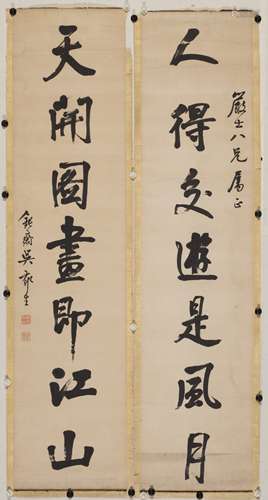 人得交遊是風月
嚴士八兄屬正
天開圖畫即江山
吳郁生